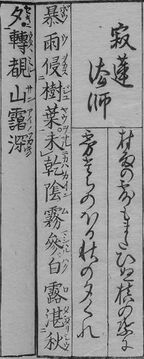 寂蓮法師
村雨の露もまだひぬ槙の葉に
霧たちのぼる秋の夕くれ
暴雨侵樹葉。未乾陰霧参。白露湛秋
夕。轉覩山靄深